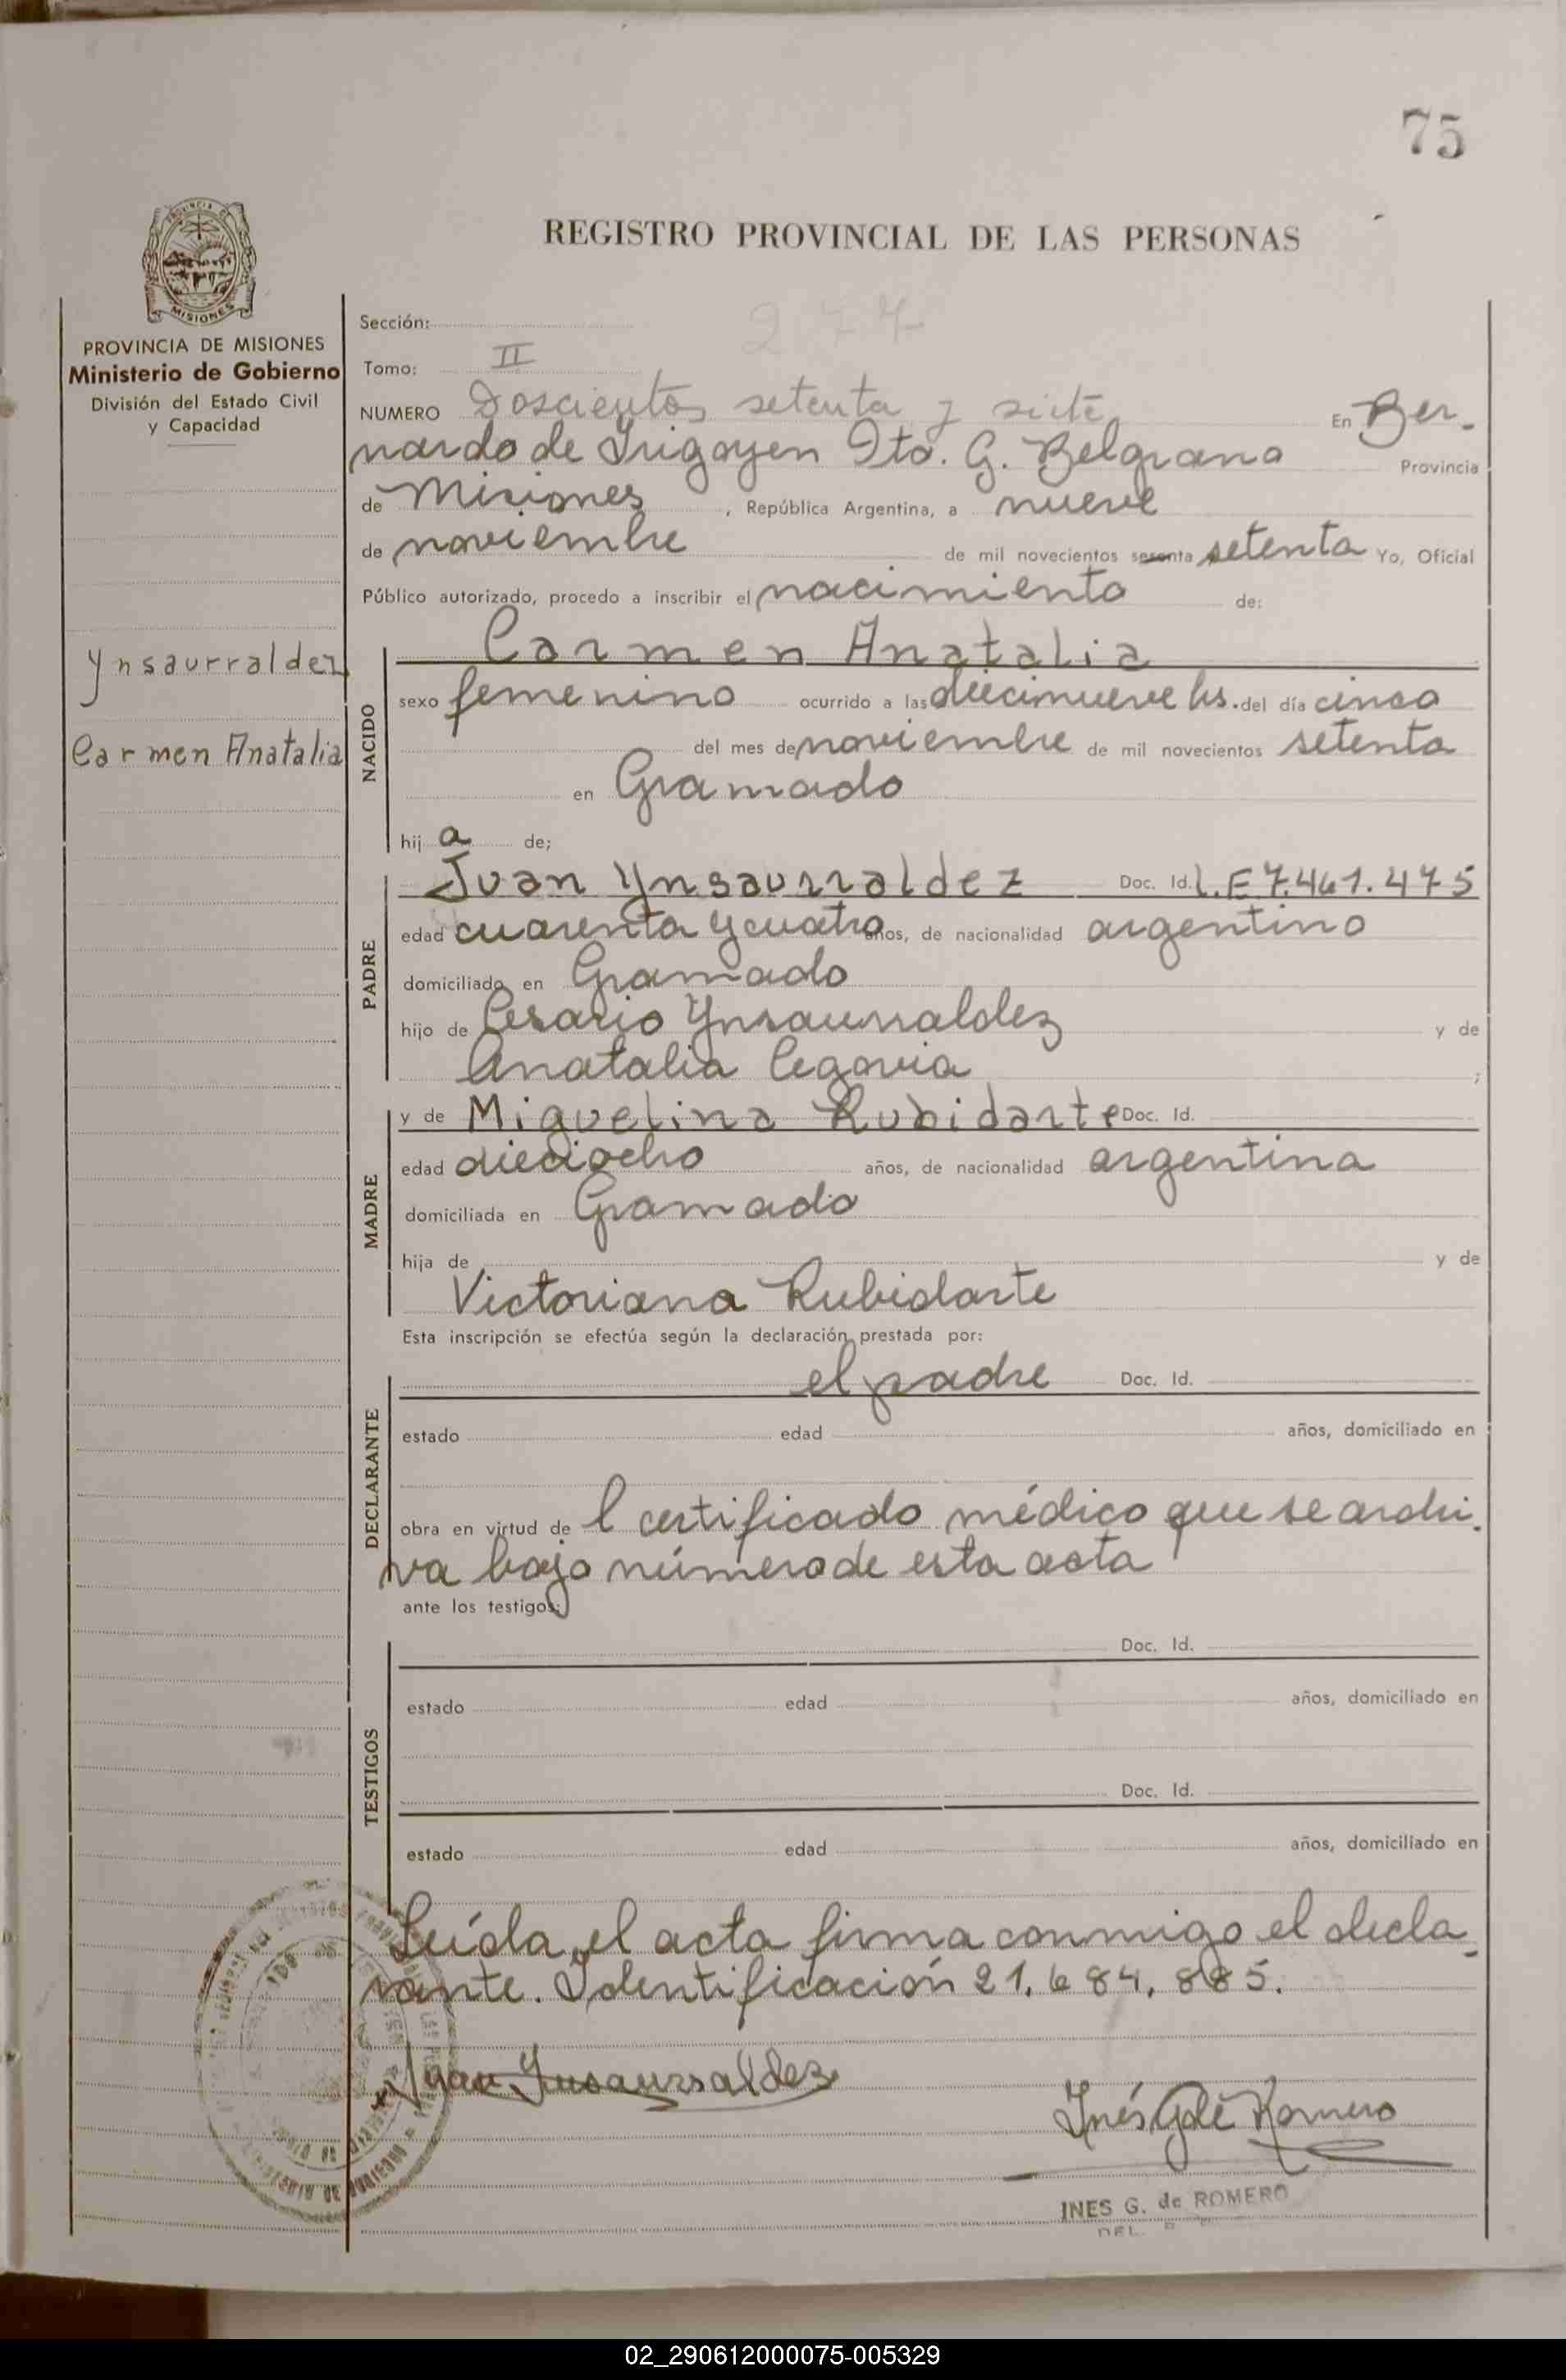 75
REGISTRO PROVINCIAL DE LAS PERSONAS
MISIONES
PROVINCIA DE MISIONES
Ministerio de Gobierno
División del Estado Civil
y Capacidad
Ynsaurraldez
Carmen Anatalia
Sección:
277
Tomo: II
NUMERO Doscientos setenta y siete En Ber-
nardo de Irigoyen Dto. G. Belgrano Provincia
de Misiones, República Argentina, a nueve
de noviembre de mil novecientos sesenta setenta Yo, Oficial
Público autorizado, procedo a inscribir el nacimiento de:
NACIDO
Carmen Anatalia
sexo femenino ocurrido a las diecinueve hs. del día cinco
del mes de noviembre de mil novecientos setenta
en Gramado
hij a de;
PADRE
Juan Ynsaurraldez Doc. Id. L.E 7.461.475
edad cuarenta y cuatro años, de nacionalidad argentino
domiciliado en Gramado
hijo de Cesario Ynsaurraldez y de
Anatalia Cegovia ;
MADRE
y de Miguelina Rubidarte Doc. Id.
edad dieciocho años, de nacionalidad argentina
domiciliada en Gramado
hija de y de
Victoriana Rubidarte
Esta inscripción se efectúa según la declaración prestada por:
DECLARANTE
el padre Doc. Id.
estado edad años, domiciliado en
obra en virtud de l certificado médico que se archi-
va bajo número de esta acta
ante los testigos:
TESTIGOS
Doc. Id.
estado edad años, domiciliado en
Doc. Id.
estado edad años, domiciliado en
Leída el acta firma conmigo el decla-
rante. Identificación 21.684.885.
Juan Ynsaurraldez
Inés G de Romero
INES G. de ROMERO
DEL.
02_290612000075-005329